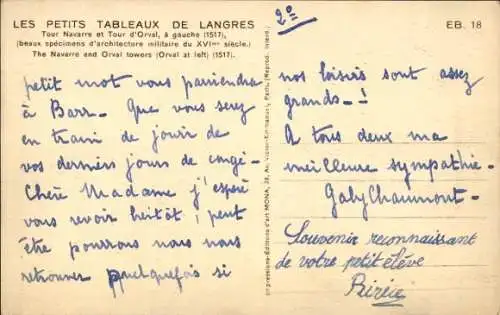 LES PETITS TABLEAUX DE LANGRES
Tour Navarre et Tour d'Orval, à gauche (1517),
(beaux spécimens d'architecture militaire du XVIme siècle.)
The Navarre and Orval towers (Orval at left) (1517).
2º
EB. 18
petit mot vous parviendra
à Barr - Que vous serez
en train de jouir de
vos derniers jours de congé -
Chère Madame j'espère
vous revoir bientôt ; peut
être pourrons nous nous
retrouver quelquefois si
Impressions-Éditions d'art MONA, 28, Av. Victor-Emmanuel, Paris (Reprod. interd.)
nos loisirs sont assez
grands - !
A tous deux ma
meilleure sympathie -
Gaby Chaumont -
Souvenir reconnaissant
de votre petit élève